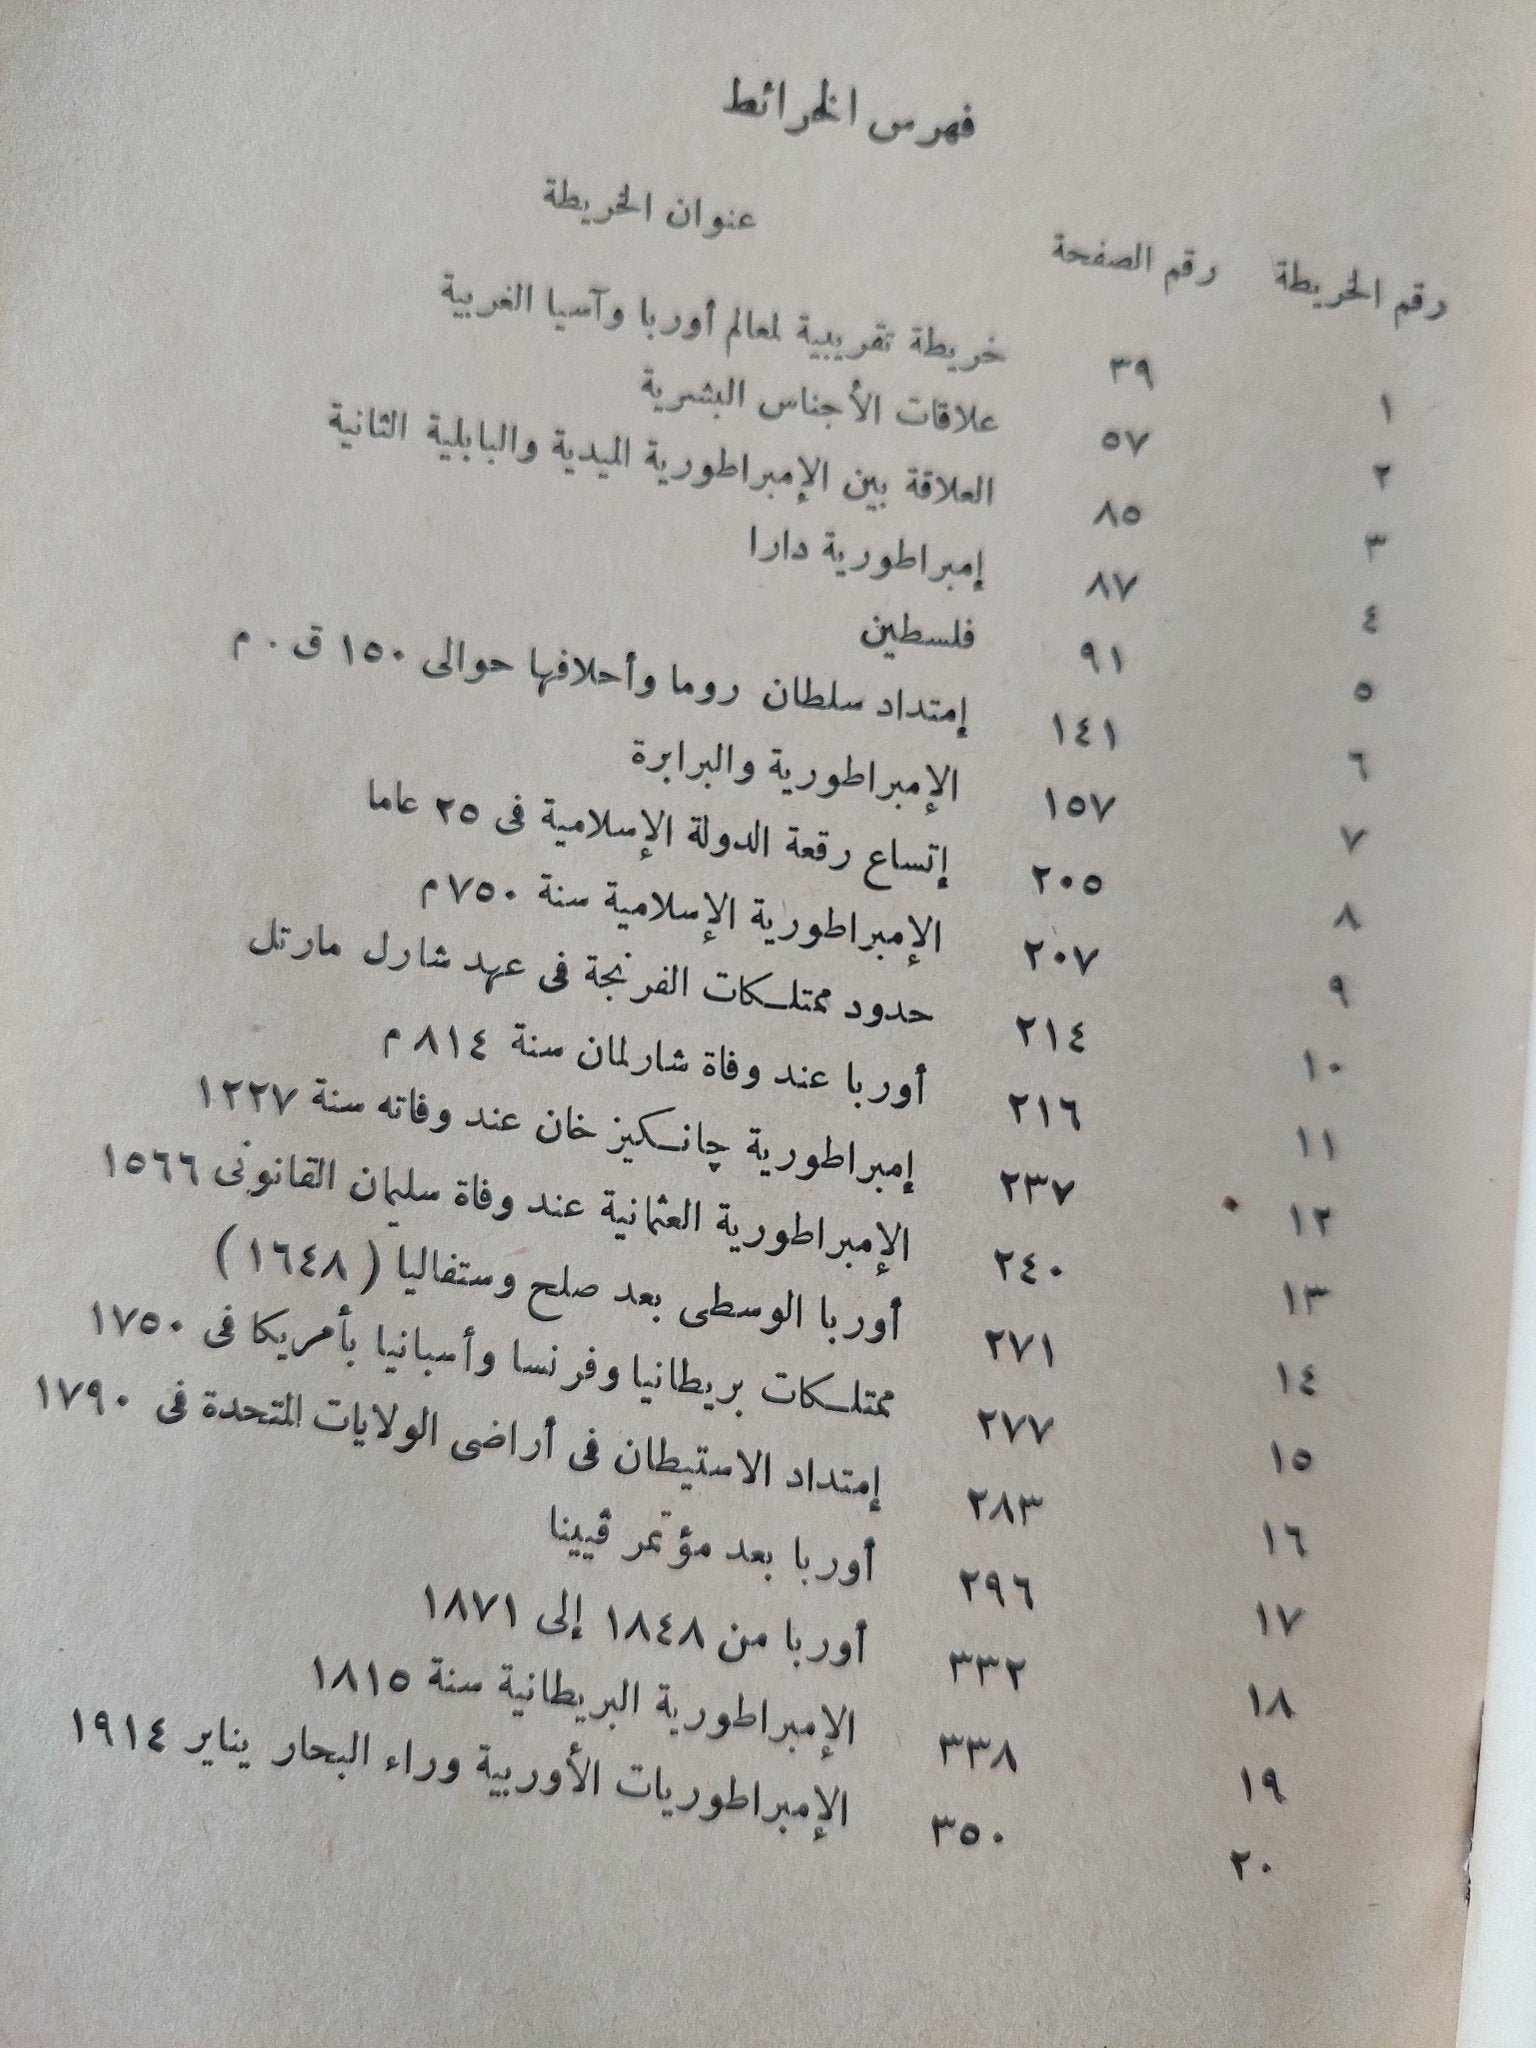 فهرس الخرائط
رقم الخريطة رقم الصفحة عنوان الخريطة
١ ٣٩ خريطة تقريبية لمعالم أوربا وآسيا الغربية
٢ ٥٧ علاقات الأجناس البشرية
٣ ٨٥ العلاقة بين الإمبراطورية الميدية والبابلية الثانية
٤ ٨٧ إمبراطورية دارا
٥ ٩١ فلسطين
٦ ١٤١ إمتداد سلطان روما وأحلافها حوالى ١٥٠ ق . م
٧ ١٥٧ الإمبراطورية والبرابرة
٨ ٢٠٥ إتساع رقعة الدولة الإسلامية فى ٢٥ عاما
٩ ٢٠٧ الإمبراطورية الإسلامية سنة ٧٥٠ م
١٠ ٢١٤ حدود ممتلكات الفرنجة فى عهد شارل مارتل
١١ ٢١٦ أوربا عند وفاة شارلمان سنة ٨١٤ م
١٢ ٢٣٧ إمبراطورية چانكيز خان عند وفاته سنة ١٢٢٧
١٣ ٢٤٠ الإمبراطورية العثمانية عند وفاة سليمان القانونى ١٥٦٦
١٤ ٢٧١ أوربا الوسطى بعد صلح وستفاليا ( ١٦٤٨ )
١٥ ٢٧٧ ممتلكات بريطانيا وفرنسا وأسبانيا بأمريكا فى ١٧٥٠
١٦ ٢٨٣ إمتداد الاستيطان فى أراضى الولايات المتحدة فى ١٧٩٠
١٧ ٢٩٦ أوربا بعد مؤتمر ڤيينا
١٨ ٣٣٢ أوربا من ١٨٤٨ إلى ١٨٧١
١٩ ٣٣٨ الإمبراطورية البريطانية سنة ١٨١٥
٢٠ ٣٥٠ الإمبراطوريات الأوربية وراء البحار يناير ١٩١٤